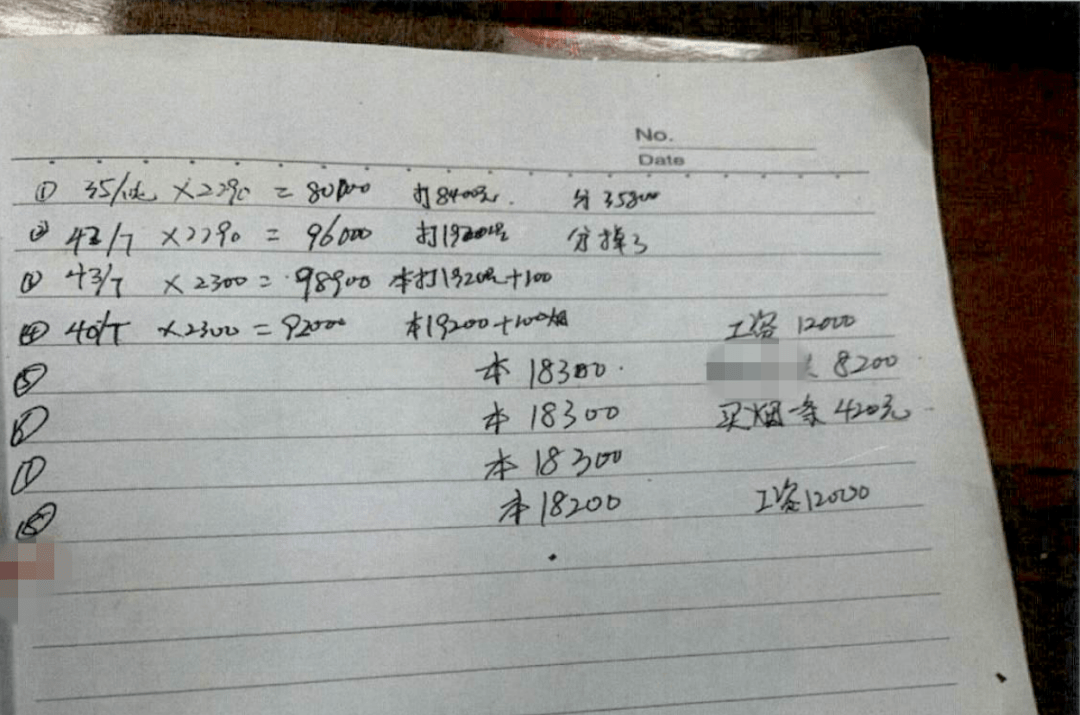 No.
Date
① 35/吨 ×2290 = 80000 打8400元. 分35800
② 42/T ×2290 = 96000 分掉了
③ 43/T ×2300 = 98900 本打19200+100
④ 40/T ×2300 = 92000 本19200+100烟 工资 12000
⑤ 本 18300. 8200
本 18300 买烟一条 420元
本 18300
本 18200 工资12000